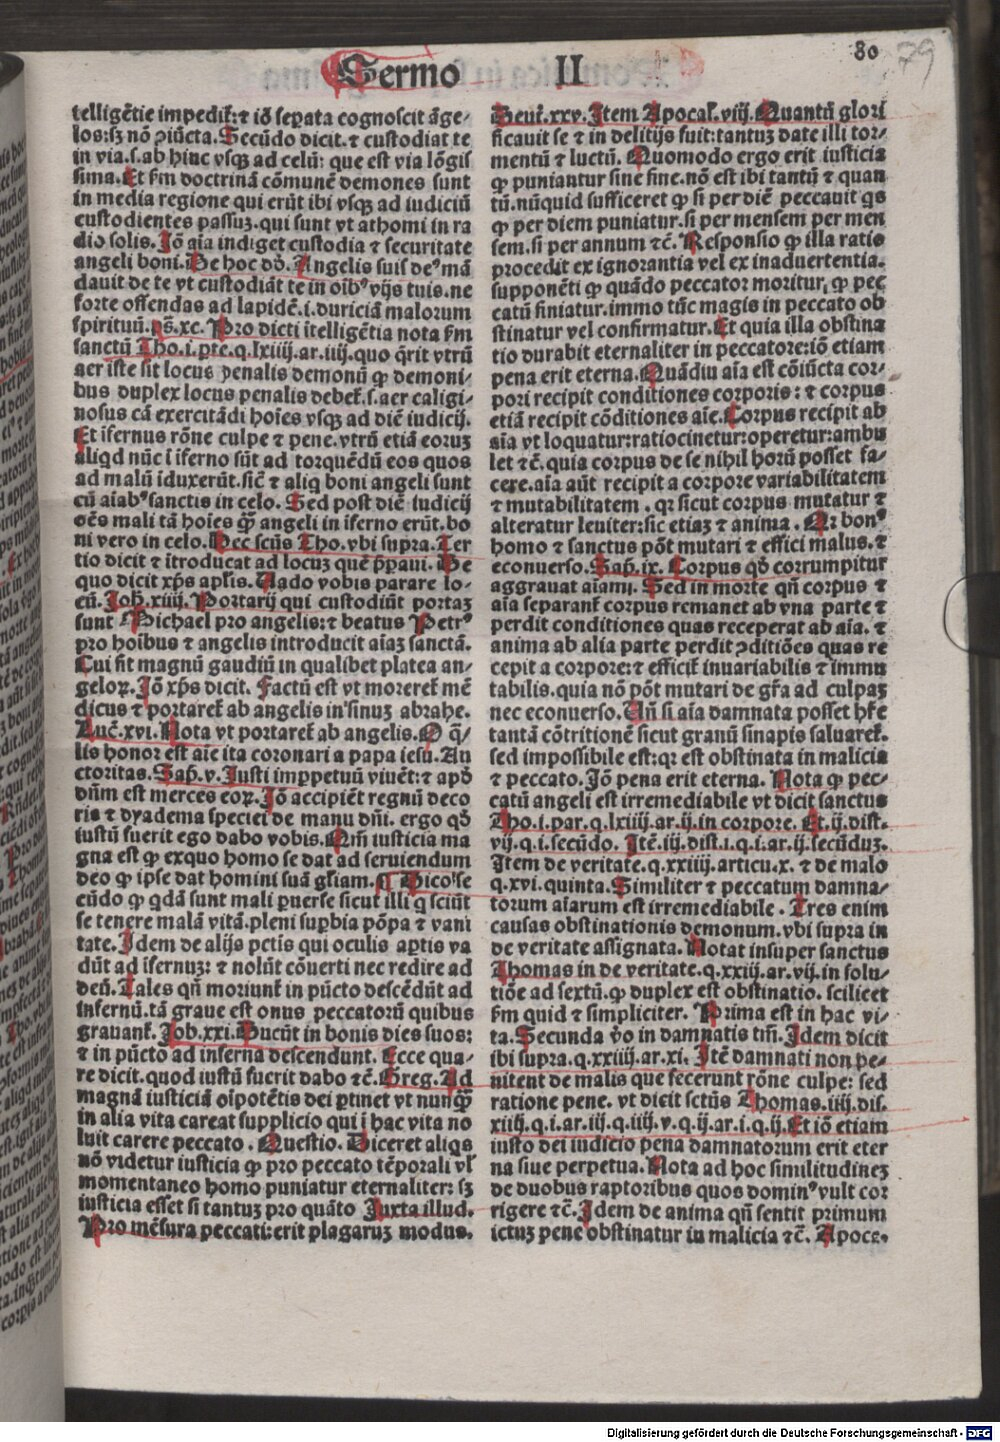 Sermo II
80
79
telligẽtie impedit̃: ⁊ iõ seꝑata cognoscit ãge-
los: sꝫ nõ ꝯiũcta. Secũdo dicit. ⁊ custodiat te
in via. s. ab hinc vsqꝫ ad celũ: que est via lõgis
sima. Et ẜm doctrinã cõmunẽ demones sunt
in media regione qui erũt ibi vsqꝫ ad iudiciũ
custodientes passuꝫ. qui sunt vt athomi in ra
dio solis. Iõ aĩa indiget custodia ⁊ securitate
angeli boni. De hoc dõ. Angelis suis deꝰ mã
dauit de te vt custodiãt te in oĩbꝰ vijs tuis. ne
forte offendas ad lapidẽ. i. duriciã malorum
spirituũ. pš. xc. Pro dicti ĩtelligẽtia nota ẜm
sanctũ Tho. i. pte. q. lxiiij. ar. iiij. quo q̃rit vtrũ
aer iste sit locus penalis demonũ ꝙ demoni-
bus duplex locus penalis debet̃. s. aer caligi-
nosus cã exercitãdi hoĩes vsqꝫ ad diẽ iudicij.
Et ĩfernus rõne culpe ⁊ pene. vtrũ etiã eoruꝫ
aliqd nũc ĩ ĩferno sũt ad torquẽdũ eos quos
ad malũ ĩduxerũt. sic̃ ⁊ aliq boni angeli sunt
cũ aĩabꝰ sanctis in celo. Sed post diẽ iudicij
oẽs mali tã hoĩes q̃ꝫ angeli in ĩferno erũt. bo
ni vero in celo. Hec scũs Tho. vbi supra. Ter
tio dicit ⁊ ĩtroducat ad locuꝫ quẽ p̃paui. De
quo dicit xp̃s aplis. Uado vobis parare lo-
cũ. Ioh̃. xiiij. Portarij qui custodiũt portaꝫ
sunt Michael pro angelis: ⁊ beatus Petrꝰ
pro hoĩbus ⁊ angelis introducit aĩaꝫ sanctã.
Cui fit magnũ gaudiũ in qualibet platea an-
geloꝝ. Iõ xp̃s dicit. Factũ est vt moreret̃ mẽ
dicus ⁊ portaret̃ ab angelis in sinuꝫ abrahe.
Luc̃. xvi. Nota vt portaret̃ ab angelis. O q̃-
lis honor est aĩe ita coronari a papa iesu. Au
ctoritas. Sap̃. v. Iusti imꝑpetuũ viuẽt: ⁊ apð
dñm est merces eoꝝ. Iõ accipiẽt regnũ deco
ris ⁊ dyadema speciei de manu dñi. ergo qð
iustũ fuerit ego dabo vobis. Qm̃ iusticia ma
gna est ꝙ exquo homo se dat ad seruiendum
deo ꝙ ipse dat homini suã gl̃iam. ¶ Dico se
cũdo ꝙ qdã sunt mali ꝑuerse sicut illi q sciũt
se tenere malã vitã. pleni suꝑbia põpa ⁊ vani
tate. Idem de alijs pctis qui oculis aꝑtis va
dũt ad ĩfernuꝫ: ⁊ nolũt cõuerti nec redire ad
deũ. Tales qñ moriunt̃ in pũcto descẽdũt ad
infernũ. tã graue est onus peccatorũ quibus
grauant̃. Iob. xxi. Ducũt in bonis dies suos:
⁊ in pũcto ad inferna descendunt. Ecce qua-
re dicit. quod iustũ fuerit dabo ⁊c̃. Greg. Ad
magnã iusticiã oĩpotẽtis dei ꝑtinet vt nunq̃ꝫ
in alia vita careat supplicio qui ĩ hac vita no
luit carere peccato. Questio. Diceret aliqs
nõ videtur iusticia ꝙ pro peccato tẽporali vl̃
momentaneo homo puniatur eternaliter: sꝫ
iusticia esset si tantuꝫ pro quãto Iuxta illud.
Pro mẽsura peccati: erit plagaruꝫ modus.
Deut̃. xxv. Item Apocal̃. viij. Quantũ glori
ficauit se ⁊ in delitijs fuit: tantuꝫ date illi tor-
mentũ ⁊ luctũ. Quomodo ergo erit iusticia
ꝙ puniantur sine fine. nõ est ibi tantũ ⁊ quan
tũ. nũquid sufficeret ꝙ si per diẽ peccauit qs
ꝙ per diem puniatur. si per mensem per men
sem. si per annum ⁊c̃. Responsio ꝙ illa ratio
procedit ex ignorantia vel ex inaduertentia.
supponẽti ꝙ quãdo peccator moritur, ꝙ pec
catũ finiatur. immo tũc magis in peccato ob
stinatur vel confirmatur. Et quia illa obstina
tio durabit eternaliter in peccatore: iõ etiam
pena erit eterna. Quãdiu aĩa est cõiũcta cor-
pori recipit conditiones corporis: ⁊ corpus
etiã recipit cõditiones aĩe. Corpus recipit ab
aĩa vt loquatur: ratiocinetur: operetur: ambu
let ⁊c̃. quia corpus de se nihil horũ posset fa-
cere. aĩa aũt recipit a corpore variabilitatem
⁊ mutabilitatem. qr sicut corpus mutatur ⁊
alteratur leuiter: sic etiaꝫ ⁊ anima. Qr bonꝰ
homo ⁊ sanctus põt mutari ⁊ effici malus. ⁊
econuerso. Sap̃. ix. Corpus qð corrumpitur
aggrauat aĩam. Sed in morte qñ corpus ⁊
aĩa separant̃ corpus remanet ab vna parte ⁊
perdit conditiones quas receperat ab aĩa. ⁊
anima ab alia parte perdit ꝯditiões quas re
cepit a corpore: ⁊ efficit̃ inuariabilis ⁊ immu
tabilis. quia nõ põt mutari de gr̃a ad culpaꝫ
nec econuerso. Uñ si aĩa damnata posset hr̃e
tantã cõtritionẽ sicut granũ sinapis saluaret̃.
sed impossibile est: qr est obstinata in malicia
⁊ peccato. Iõ pena erit eterna. Nota ꝙ pec-
catũ angeli est irremediabile vt dicit sanctus
Tho. i. par. q. lxiiij. ar. ij. in corpore. Et. ij. dist.
vij. q. i. secũdo. Itẽ. iij. dist. i. q. i. ar. ij. secũduꝫ.
Item de veritate. q. xxiiij. articu. x. ⁊ de malo
q. xvi. quinta. Similiter ⁊ peccatum damna-
torum aĩarum est irremediabile. Tres enim
causas obstinationis demonum. vbi supra in
de veritate assignata. Notat insuper sanctus
Thomas in de veritate. q. xxiij. ar. vij. in solu-
tiõe ad sextũ. ꝙ duplex est obstinatio. scilicet
ẜm quid ⁊ simpliciter. Prima est in hac vi-
ta. Secunda v̾o in damnatis tm̃. Idem dicit
ibi supra. q. xxiiij. ar. xi. Itẽ damnati non pe-
nitent de malis que fecerunt rõne culpe: sed
ratione pene. vt dicit sctũs Thomas. iiij. dis.
xiiij. q. i. ar. iij. q. iiij. v. q. ij. ar. i. q. ij. Et iõ etiam
iusto dei iudicio pena damnatorum erit eter
na siue perpetua. Nota ad hoc similitudineꝫ
de duobus raptoribus quos dominꝰ vult cor
rigere ⁊c̃. Idem de anima qñ sentit primum
ictuꝫ pene obstinatur in malicia ⁊c̃. Apoce.
Digitalisierung gefördert durch die Deutsche Forschungsgemeinschaft - DFG